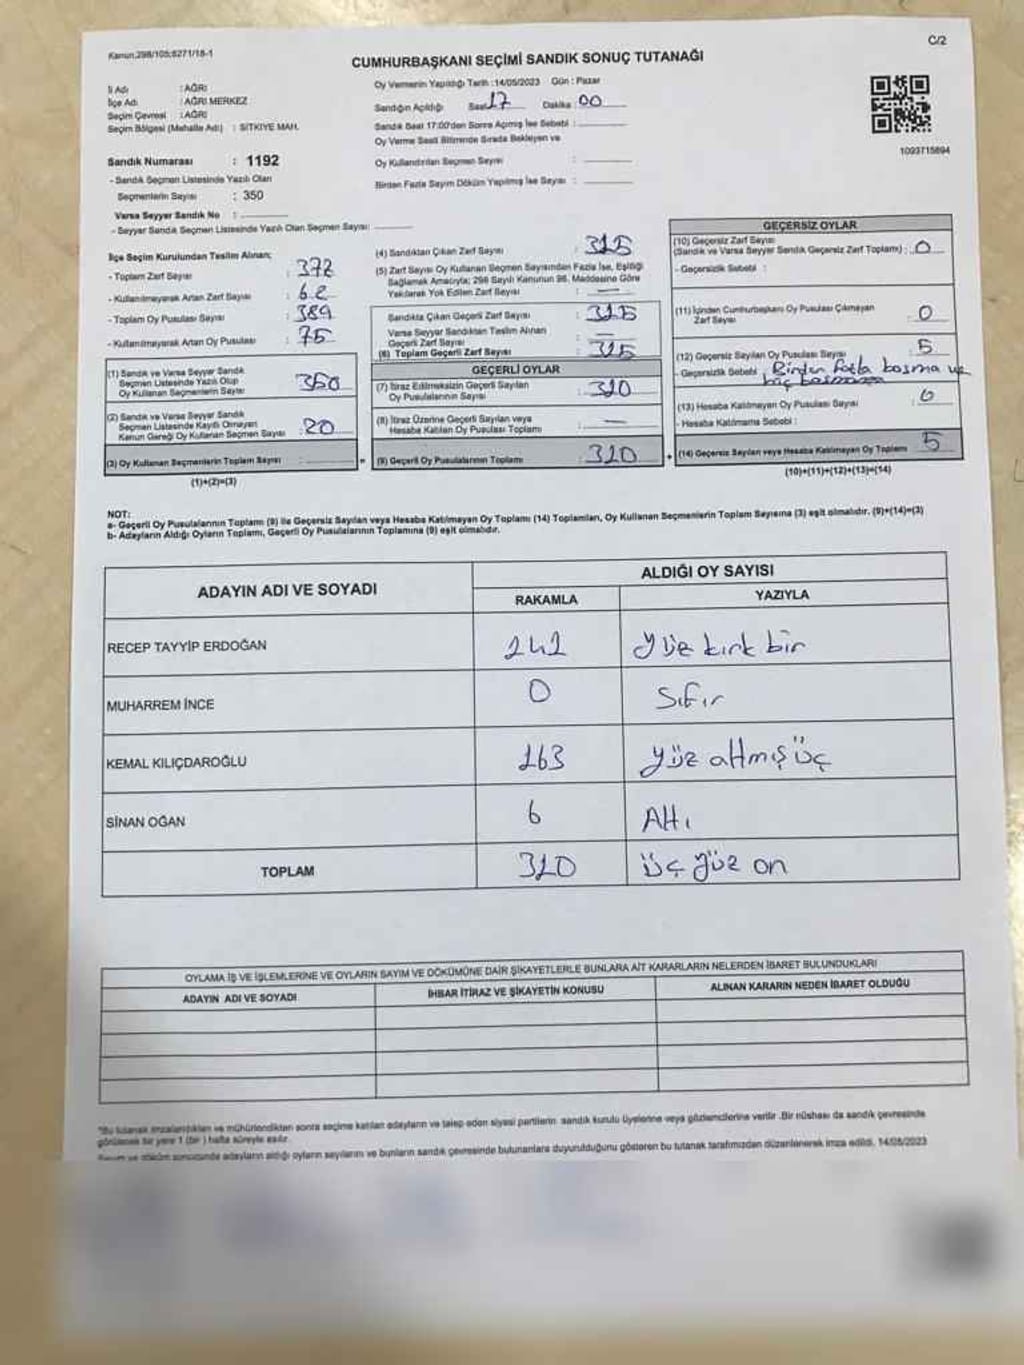 Kanun.298/105;6271/18-1
C/2
CUMHURBAŞKANI SEÇİMİ SANDIK SONUÇ TUTANAĞI
İl Adı : AĞRI
İlçe Adı : AĞRI MERKEZ
Seçim Çevresi : AĞRI
Seçim Bölgesi (Mahalle Adı) : SITKIYE MAH.
Sandık Numarası : 1192
- Sandık Seçmen Listesinde Yazılı Olan
Seçmenlerin Sayısı : 350
Varsa Seyyar Sandık No :
- Seyyar Sandık Seçmen Listesinde Yazılı Olan Seçmen Sayısı:
Oy Vermenin Yapıldığı Tarih :14/05/2023 Gün : Pazar
Sandığın Açıldığı Saat: 17 Dakika : 00
Sandık Saat 17:00'den Sonra Açılmış İse Sebebi :
Oy Verme Saati Bitiminde Sırada Bekleyen ve
Oy Kullandırılan Seçmen Sayısı :
Birden Fazla Sayım Döküm Yapılmış İse Sayısı :
1093715694
İlçe Seçim Kurulundan Teslim Alınan;
- Toplam Zarf Sayısı : 372
- Kullanılmayarak Artan Zarf Sayısı : 62
- Toplam Oy Pusulası Sayısı : 389
- Kullanılmayarak Artan Oy Pusulası : 75
(1) Sandık ve Varsa Seyyar Sandık
Seçmen Listesinde Yazılı Olup
Oy Kullanan Seçmenlerin Sayısı : 350
(2) Sandık ve Varsa Seyyar Sandık
Seçmen Listesinde Kayıtlı Olmayan
Kanun Gereği Oy Kullanan Seçmen Sayısı : 20
(3) Oy Kullanan Seçmenlerin Toplam Sayısı :
=
(1)+(2)=(3)
(4) Sandıktan Çıkan Zarf Sayısı : 315
(5) Zarf Sayısı Oy Kullanan Seçmen Sayısından Fazla İse, Eşitliği
Sağlamak Amacıyla; 298 Sayılı Kanunun 98. Maddesine Göre
Yakılarak Yok Edilen Zarf Sayısı : —
Sandıkta Çıkan Geçerli Zarf Sayısı : 315
Varsa Seyyar Sandıktan Teslim Alınan
Geçerli Zarf Sayısı : —
(6) Toplam Geçerli Zarf Sayısı : 315
GEÇERLİ OYLAR
(7) İtiraz Edilmeksizin Geçerli Sayılan
Oy Pusulalarının Sayısı : 310
(8) İtiraz Üzerine Geçerli Sayılan veya
Hesaba Katılan Oy Pusulası Toplamı : —
(9) Geçerli Oy Pusulalarının Toplamı : 310
+
GEÇERSİZ OYLAR
(10) Geçersiz Zarf Sayısı
(Sandık ve Varsa Seyyar Sandık Geçersiz Zarf Toplamı) : 0
- Geçersizlik Sebebi :
(11) İçinden Cumhurbaşkanı Oy Pusulası Çıkmayan
Zarf Sayısı : 0
(12) Geçersiz Sayılan Oy Pusulası Sayısı : 5
- Geçersizlik Sebebi : Birden fazla basma ve
hiç basmama
(13) Hesaba Katılmayan Oy Pusulası Sayısı : 0
- Hesaba Katılmama Sebebi :
(14) Geçersiz Sayılan veya Hesaba Katılmayan Oy Toplamı : 5
(10)+(11)+(12)+(13)=(14)
NOT:
a- Geçerli Oy Pusulalarının Toplamı (9) ile Geçersiz Sayılan veya Hesaba Katılmayan Oy Toplamı (14) Toplamları, Oy Kullanan Seçmenlerin Toplam Sayısına (3) eşit olmalıdır. (9)+(14)=(3)
b- Adayların Aldığı Oyların Toplamı, Geçerli Oy Pusulalarının Toplamına (9) eşit olmalıdır.
ADAYIN ADI VE SOYADI ALDIĞI OY SAYISI
RAKAMLA YAZIYLA
RECEP TAYYİP ERDOĞAN 141 Yüz kırk bir
MUHARREM İNCE 0 Sıfır
KEMAL KILIÇDAROĞLU 163 yüz altmış üç
SİNAN OĞAN 6 Altı
TOPLAM 310 üç yüz on
OYLAMA İŞ VE İŞLEMLERİNE VE OYLARIN SAYIM VE DÖKÜMÜNE DAİR ŞİKAYETLERLE BUNLARA AİT KARARLARIN NELERDEN İBARET BULUNDUKLARI
ADAYIN ADI VE SOYADI İHBAR İTİRAZ VE ŞİKAYETİN KONUSU ALINAN KARARIN NEDEN İBARET OLDUĞU
*Bu tutanak imzalandıktan ve mühürlendikten sonra seçime katılan adayların ve talep eden siyasi partilerin sandık kurulu üyelerine veya gözlemcilerine verilir .Bir nüshası da sandık çevresinde
görülecek bir yere 1 (bir ) hafta süreyle asılır.
Sayım ve döküm sonucunda adayların aldığı oyların sayılarını ve bunların sandık çevresinde bulunanlara duyurulduğunu gösteren bu tutanak tarafımızdan düzenlenerek imza edildi. 14/05/2023